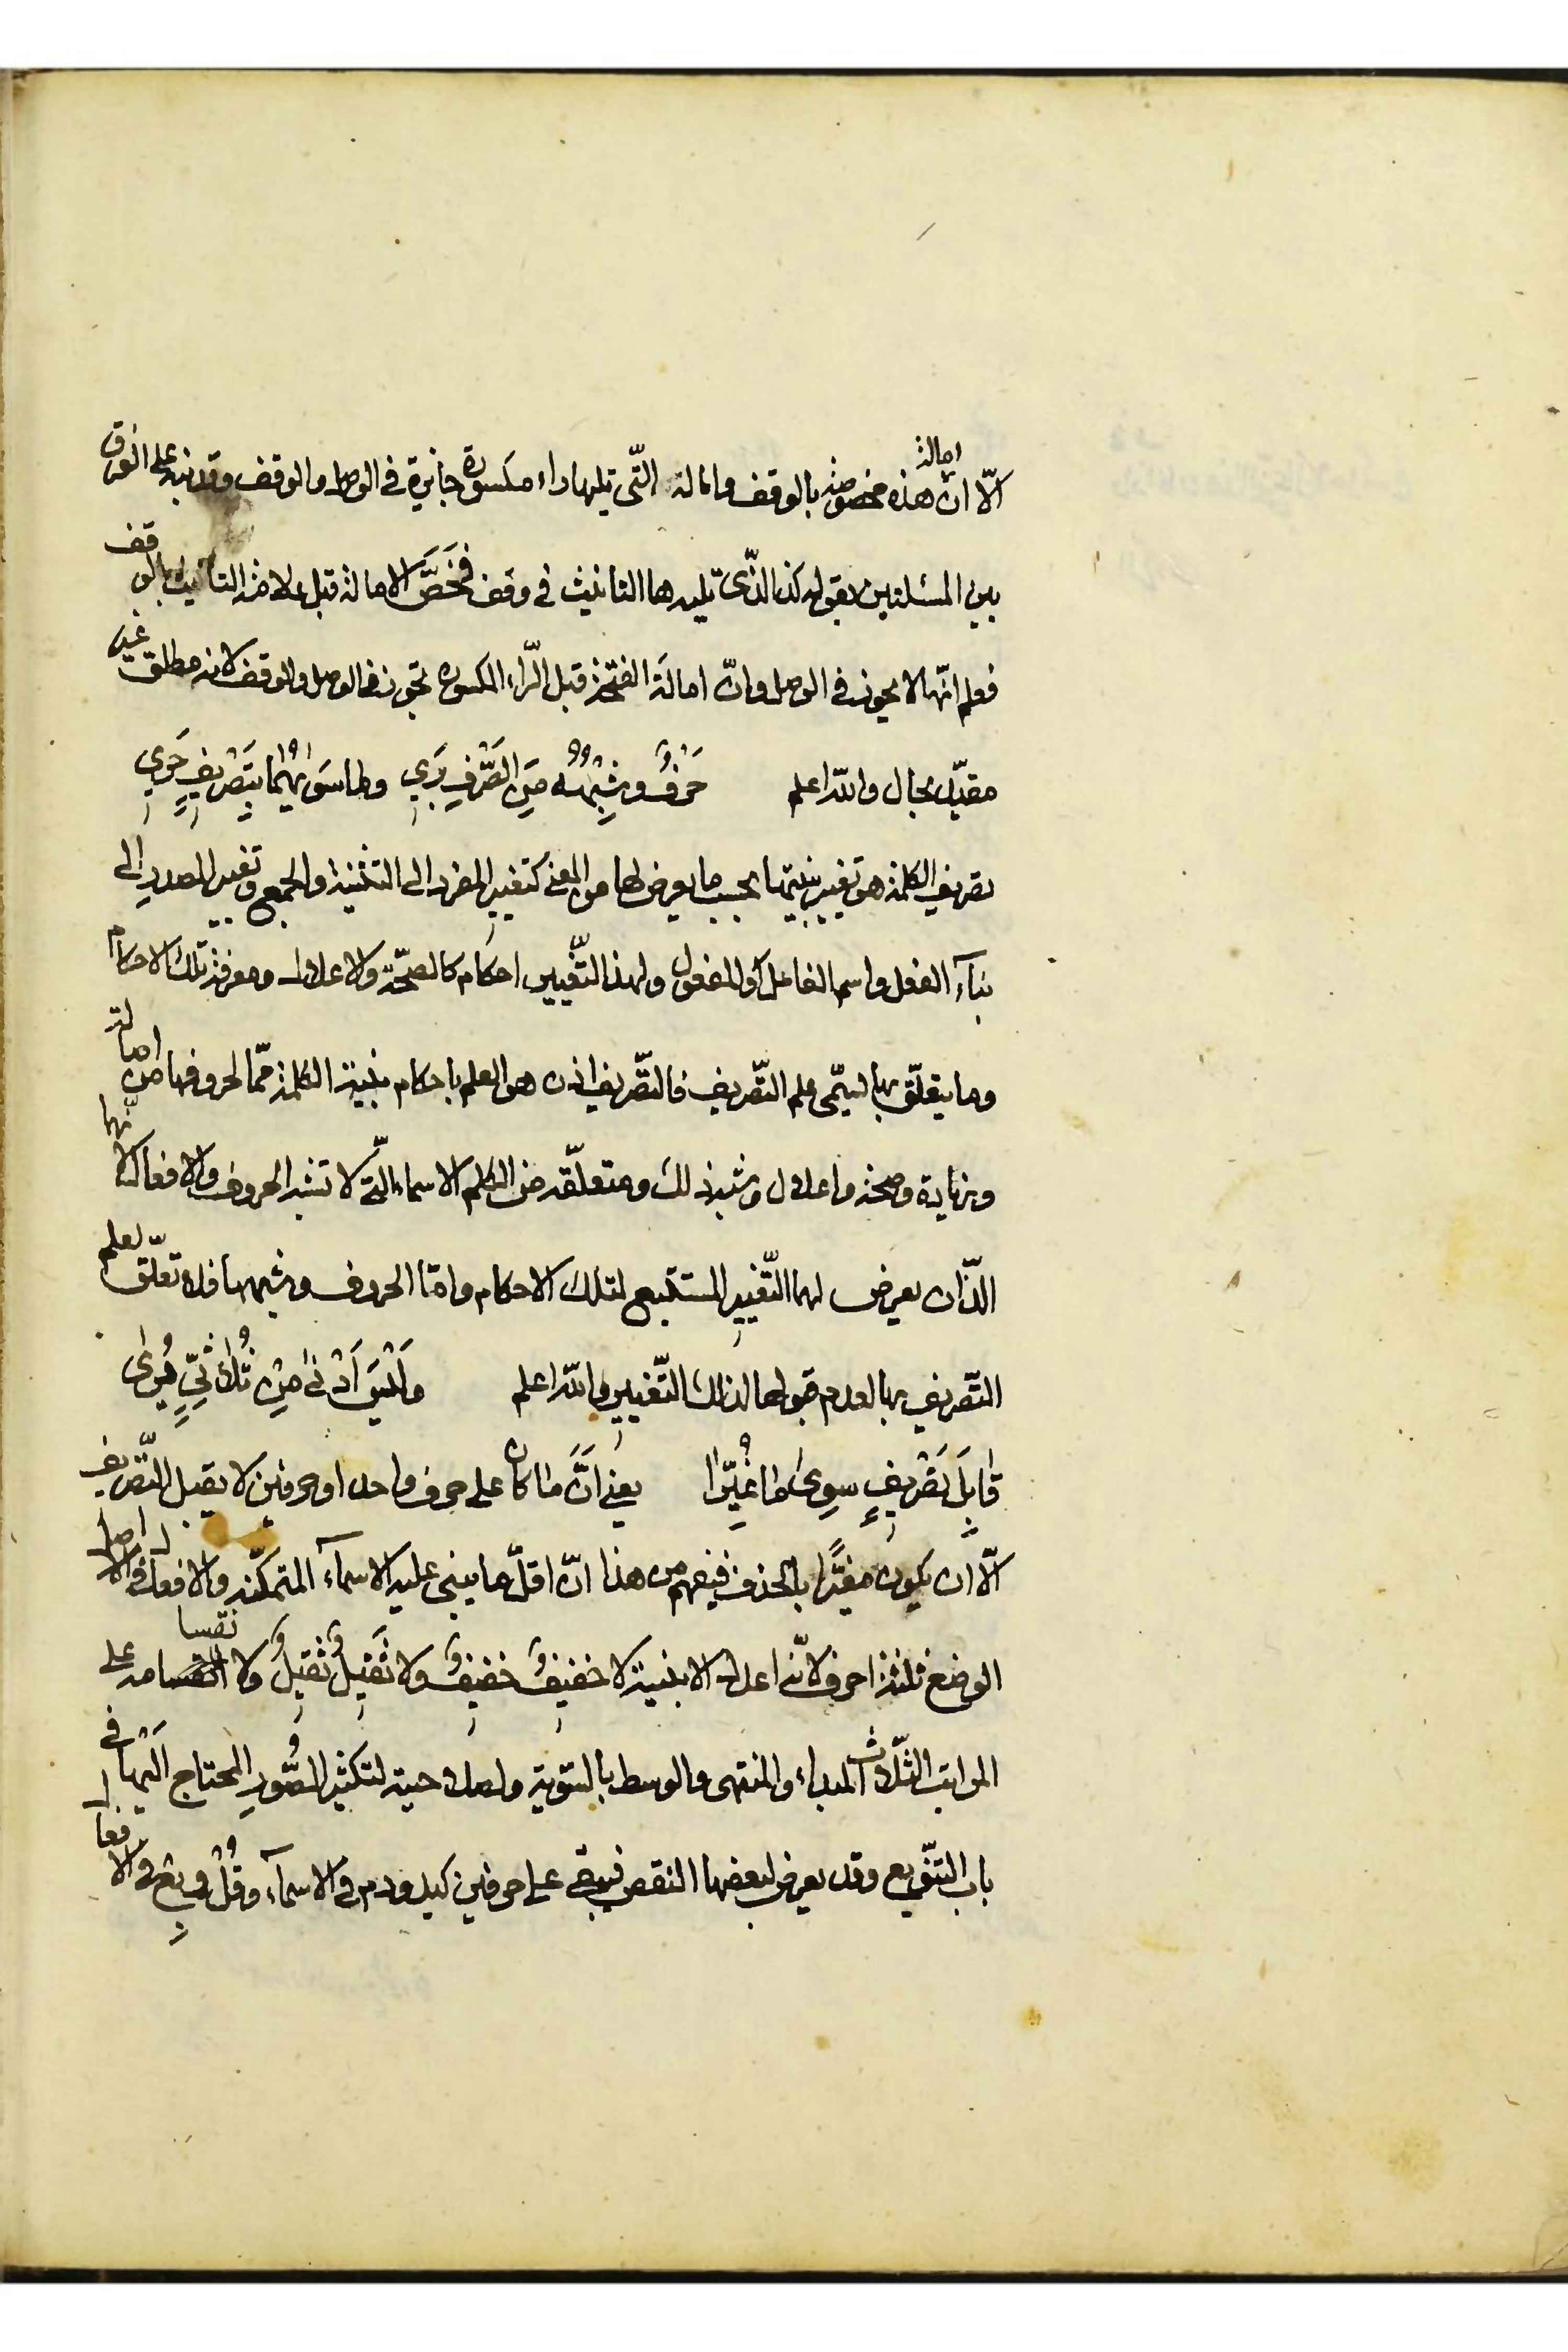 الّا انّ امالة هذه مخصوصة بالوقف وامالة التّى تليها راء مكسورة جايزة فى الوصل والوقف وقد نبه على الفرق
بين المسئلتين بقوله كذا الذّى تليه ها التانيث فى وقف فخَصَّ الامالة قبل علامة التانيث بالوقف
فعلم انّها لا يجوز فى الوصل وانّ امالَة الفتحة قبل الرّاء المكسوره تجوز فى الوصل والوقف لانه مطلق غير
مقيّد بحال واللّه اعلم حَرْفٌ وشِبْهُهُ مِنَ الصَّرْفِ بَرِى وما سَوِاهُمٰا بِتَصْرِيفٍ حَرِى
تصريف الكلمة هو تغيير بنيتها بحسب ما يعرض لها من المعنى كتغيير المفرد الى التثنية والجمع وتغيير المصدرِ الى
بنآء الفعل واسم الفاعل والمفعول ولهذا التّغيير احكام كالصّحّة والاعلال ومعرفة تلك الاحكام
وما يتعلّق بها يسمّى علم التّصريف فالتّصريف اذن هو العلم باحكام بنية الكلمة ممّا لحروفها من اصالة
وزيادة وصحّة واعلال وشبه ذلك ومتعلّقه من الكلم الاسماء الّتى لا تشبه الحروف والافعال لانّهما
اللّذان يعرض لهما التّغيير المستتبع لتلك الاحكام وامّا الحروف وشبهها فلا تعلّق لعلم
التّصريف بها لعدم قبولها لذلك التّغيير واللّه اعلم وَلَيْسَ اَدْنىٰ مِنْ ثُلٰاثىٍّ يُرىٰ
قٰابِلَ تَصْرِيفٍ سِوىٰ مٰا غُيِّرٰا يعنى انَّ مٰا كان على حرف واحد او حرفين لا يقبل التّصريف
الّا ان يكون مغيَّرًا بالحذف فيفهم من هذا انّ اقلّ ما يبنى عليه الاسمآء المتمكّنه والافعال فى الاصل
الوضع ثلثة احرف لانّه اعدل الابنية لا خفيفٌ خفيفٌ ولا ثَقيلٌ ثقيلٌ ولا نقسامه على
المراتب الثّلاث المبداء والمنتهى والوسط بالسّوية ولصلاحيته لتكثير الصُّورِ المحتاج اليْها فى
باب التنّويع وقد يعرض لبعضها النقص فيبقى على حرفين كيد ودم فى الاسمآء وقُلْ وبِعْ فى الافعال